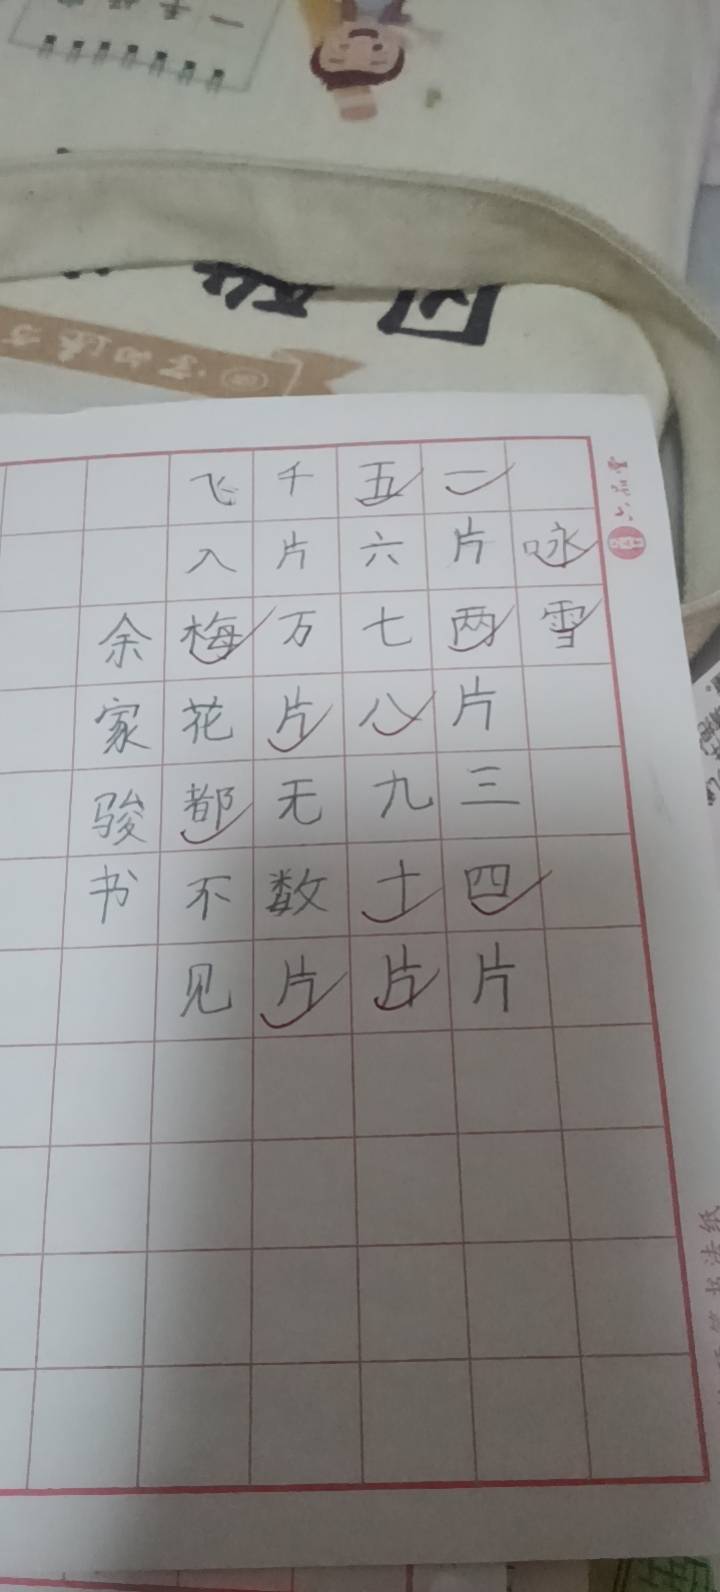 咏雪
一片两片三四片
五六七八九十片
千片万片无数片
飞入梅花都不见
余家骏书
六品堂